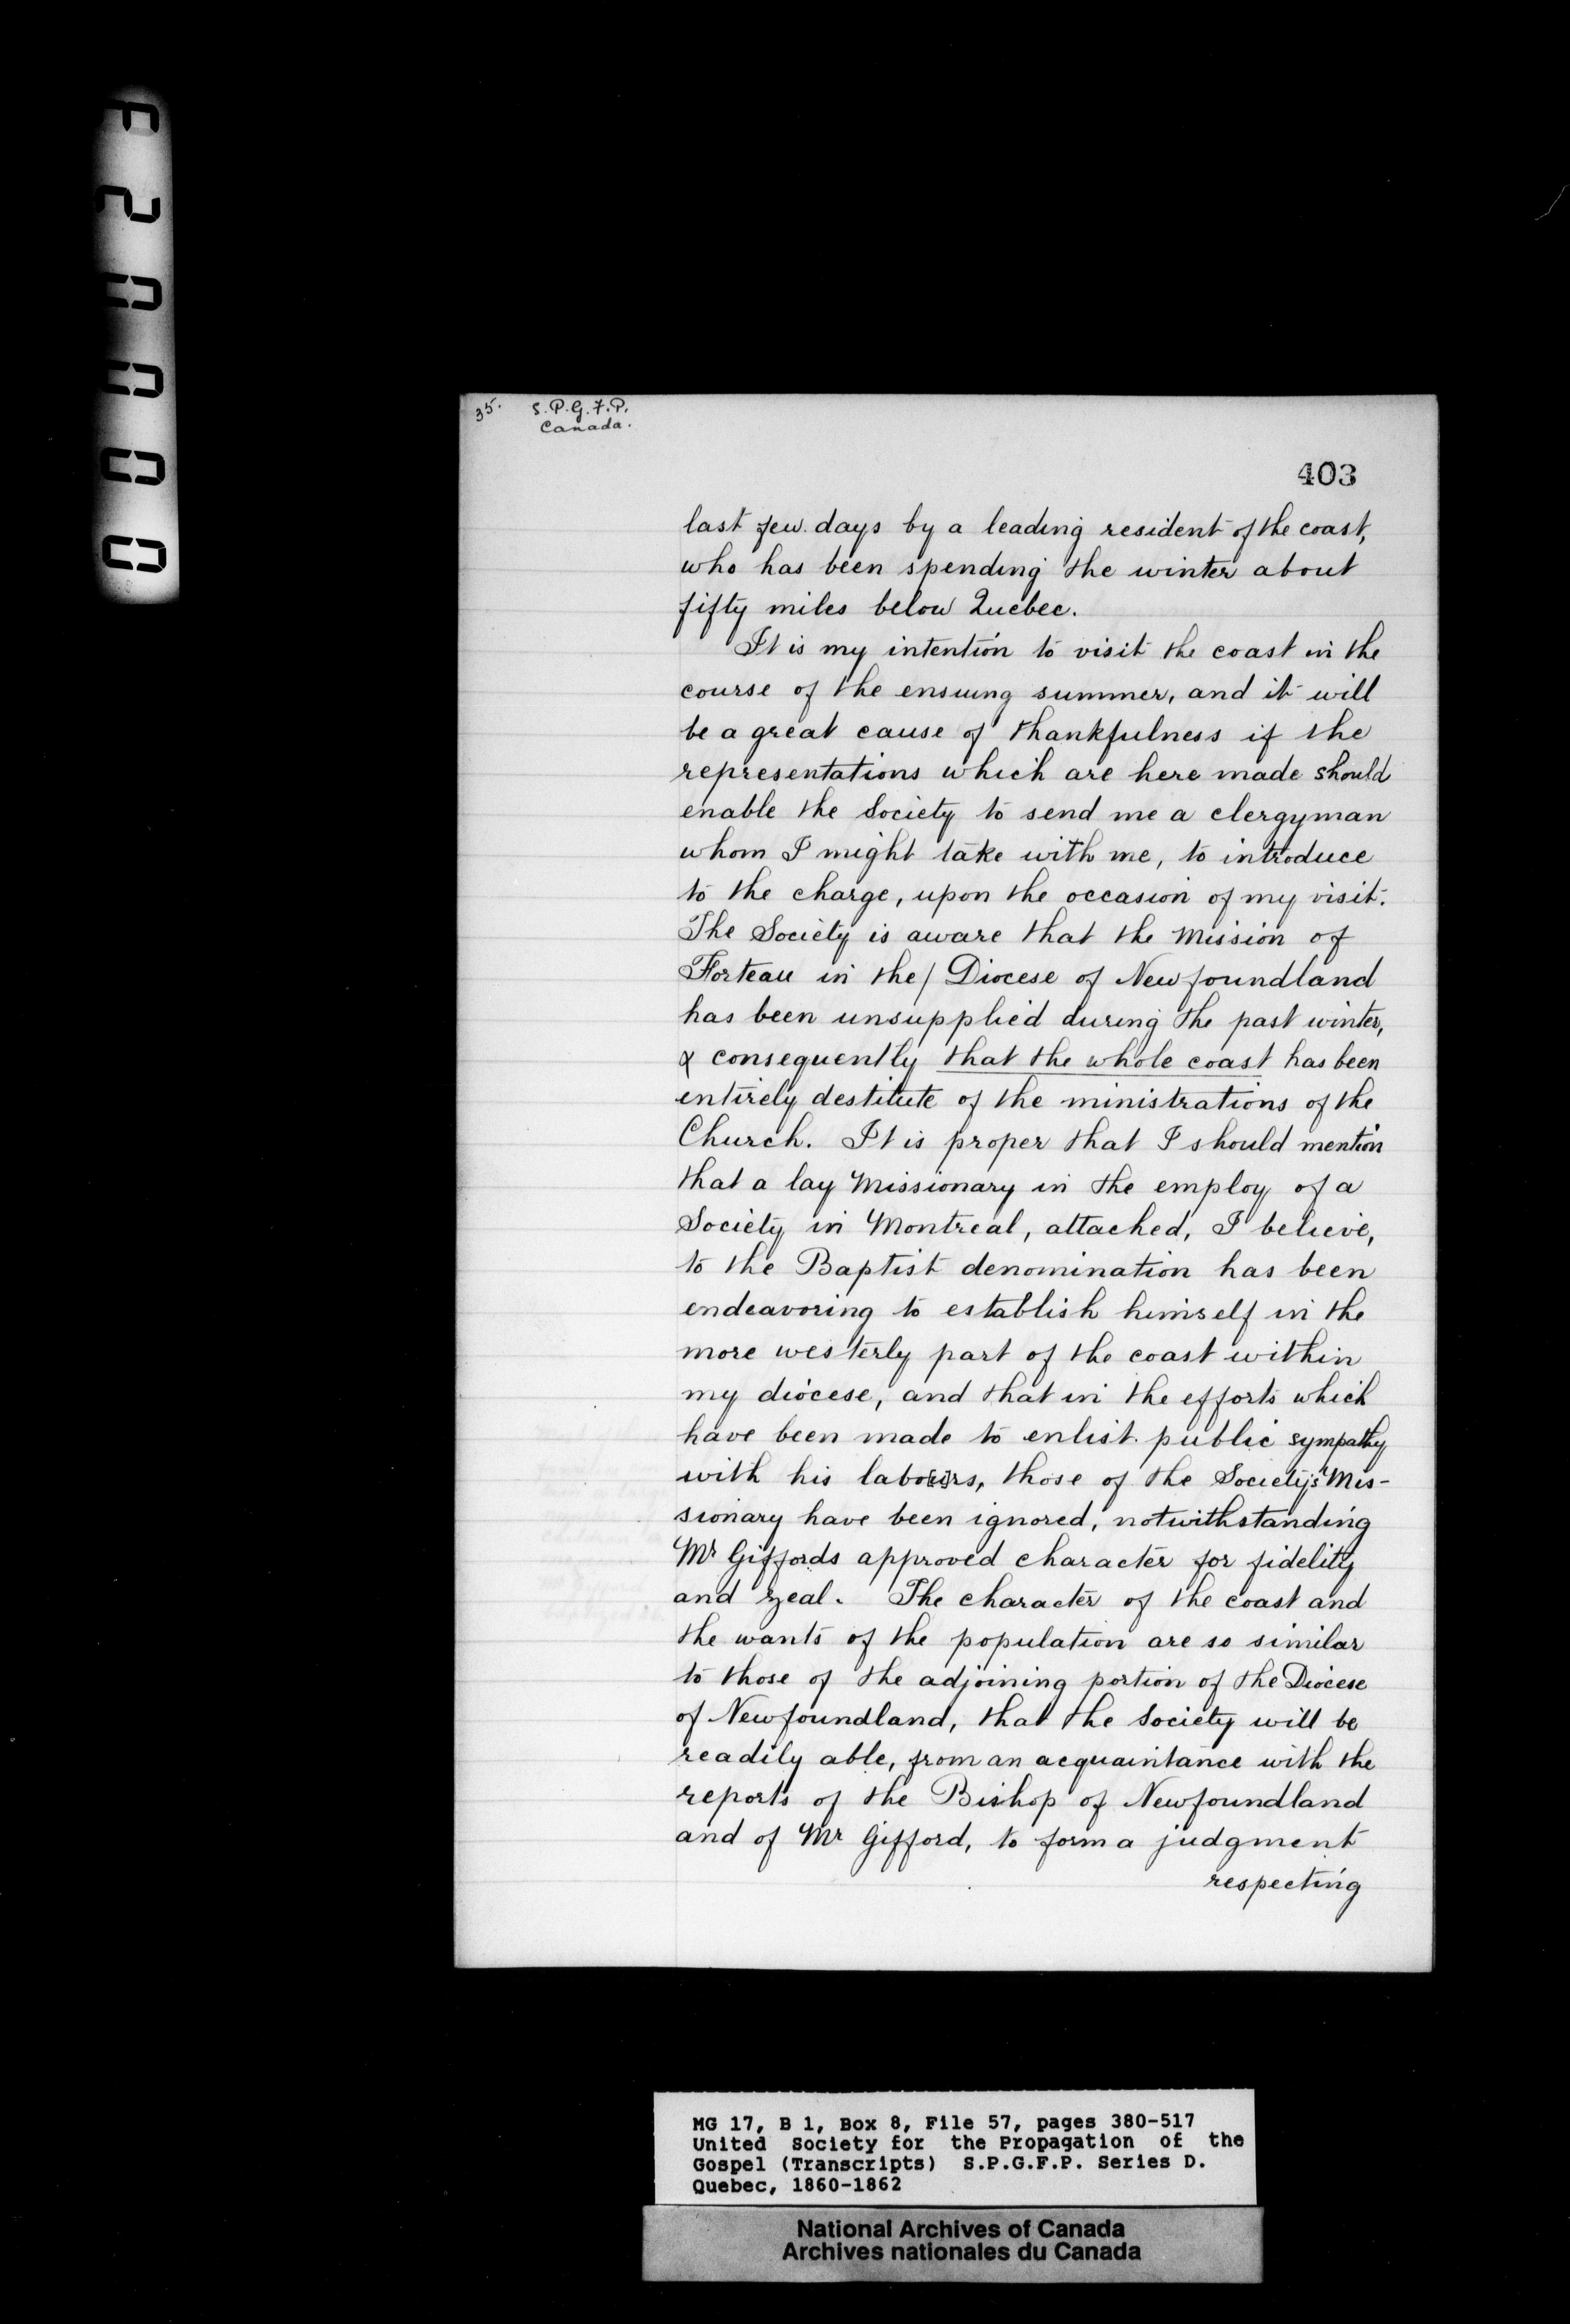 F20000
35. S.P.G.F.P.
Canada.
403
last few days by a leading resident of the coast,
who has been spending the winter about
fifty miles below Quebec.
It is my intention to visit the coast in the
course of the ensuing summer, and it will
be a great cause of thankfulness if the
representations which are here made should
enable the Society to send me a clergyman
whom I might take with me, to introduce
to the charge, upon the occasion of my visit.
The Society is aware that the Mission of
Forteau in the/ Diocese of Newfoundland
has been unsupplied during the past winter,
& consequently that the whole coast has been
entirely destitute of the ministrations of the
Church. It is proper that I should mention
that a lay Missionary in the employ of a
Society in Montreal, attached, I believe,
to the Baptist denomination has been
endeavoring to establish himself in the
more westerly part of the coast within
my diocese, and that in the efforts which
have been made to enlist public sympathy
with his labours, those of the Society's Mis-
sionary have been ignored, notwithstanding
Mr Giffords approved character for fidelity
and zeal. The character of the coast and
the wants of the population are so similar
to those of the adjoining portion of the Diocese
of Newfoundland, that the Society will be
readily able, from an acquaintance with the
reports of the Bishop of Newfoundland
and of Mr Gifford, to form a judgment
respecting
MG 17, B 1, Box 8, File 57, pages 380-517
United Society for the Propagation of the
Gospel (Transcripts) S.P.G.F.P. Series D.
Quebec, 1860-1862
National Archives of Canada
Archives nationales du Canada